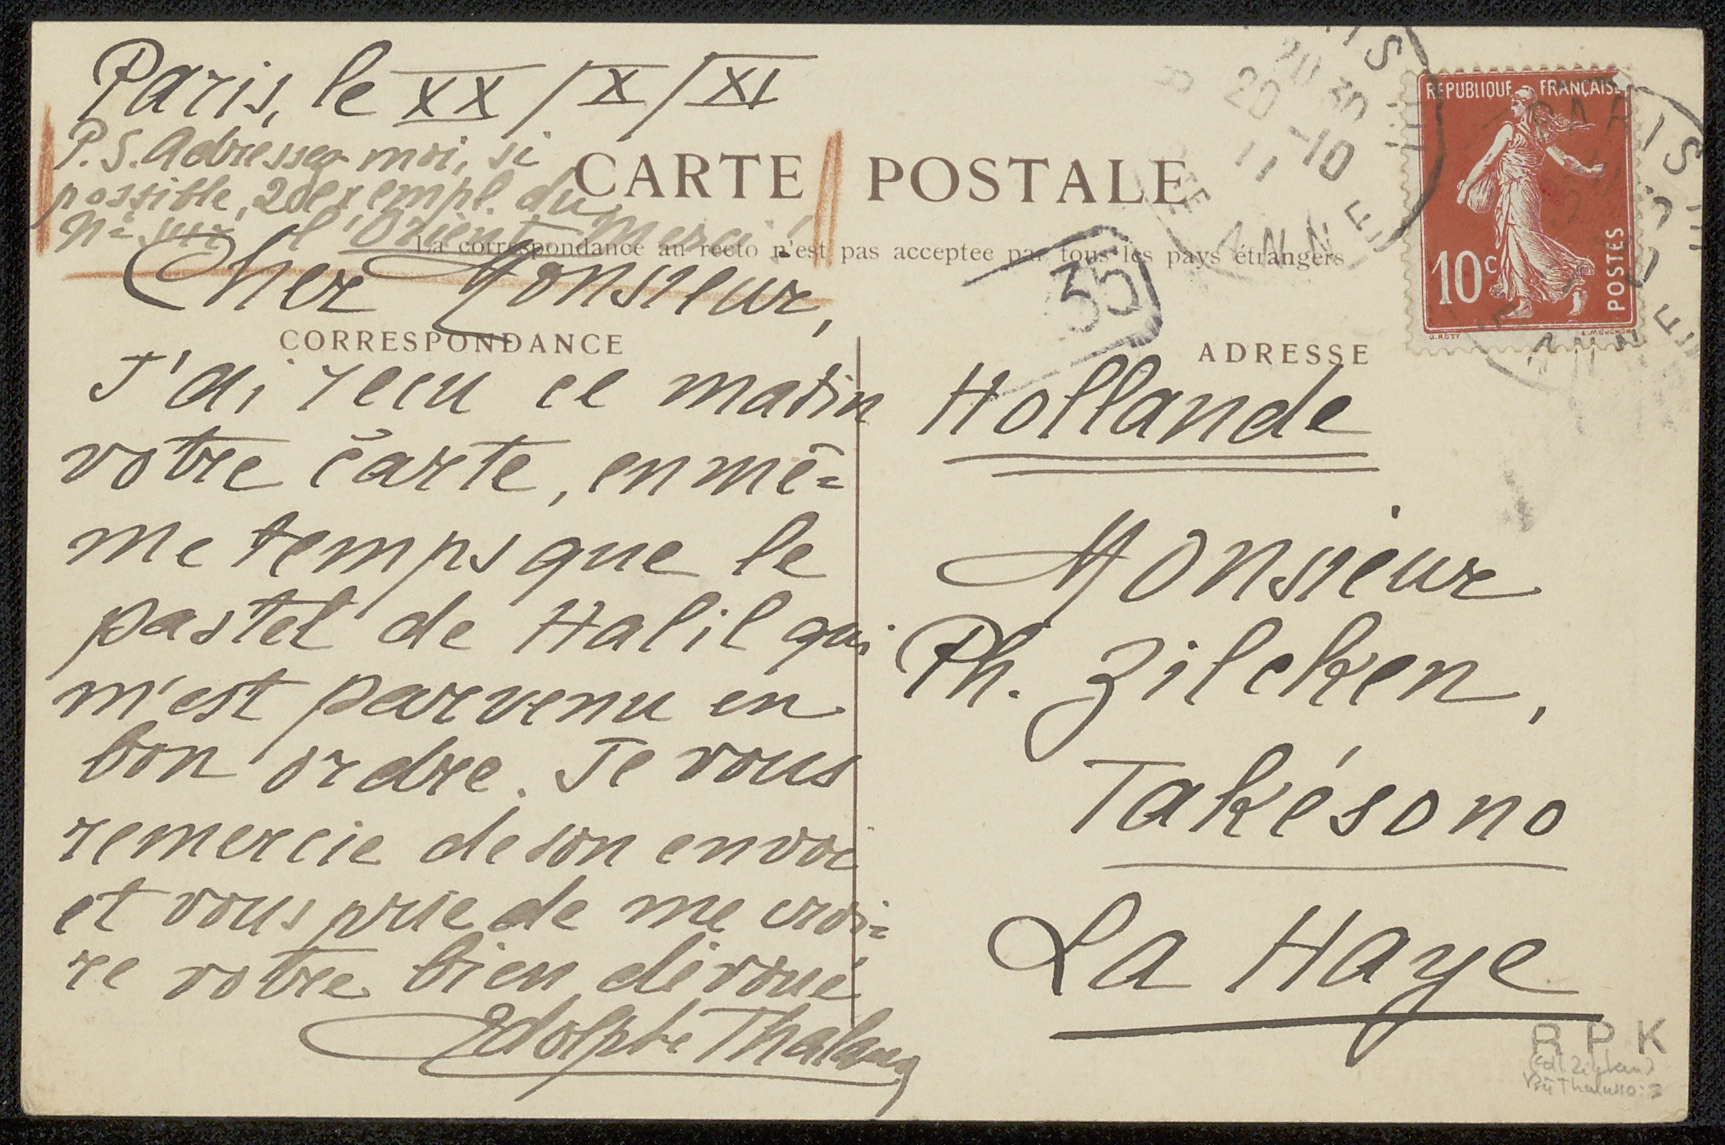 Paris, le XX / X / XI
P.S. Adressez-moi, si
possible, 20 exempl. du
l'Orient. Merci!
CARTE POSTALE
La correspondance au recto n'est pas acceptée par tous les pays étrangers
CORRESPONDANCE
Cher Monsieur,
J'ai reçu ce matin
votre carte, en mê=
me temps que le
pastel de Halil qui
m'est parvenu en
bon ordre. Je vous
remercie de son envoi
et vous prie de me croi=
re votre bien dévoué
Adolphe Thalasso
ADRESSE
Hollande
Monsieur
Ph. Zilcken,
Takésono
La Haye
REPUBLIQUE FRANÇAISE
10c
POSTES
PARIS
20 30
20 -10
11
35
R P K